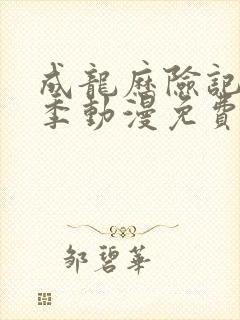 成龍歷險記
季動漫免費
鄒碧華